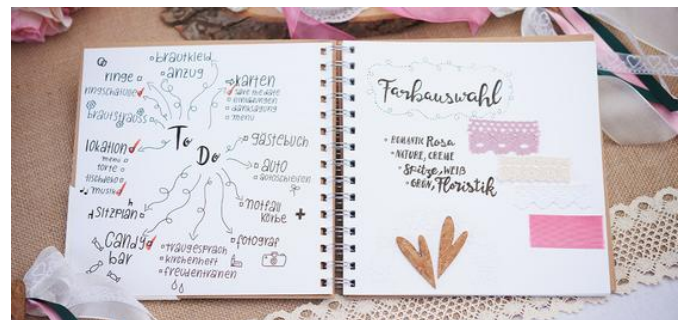 brautkleid
anzug
ringe
ringschatulle
brautstrauss
karten
save the date
einladungen
danksagung
menü
To
Do
lokation
menü
torte
tischdeko
musik
gästebuch
auto
autoschleifen
sitzplan
notfall
körbe
candy
bar
traugespräch
kirchenheft
freudentränen
fotograf
Farbauswahl
ROMANTIC Rosa
NATURE, CREME
Spitze, WEIß
GRÜN, Floristik